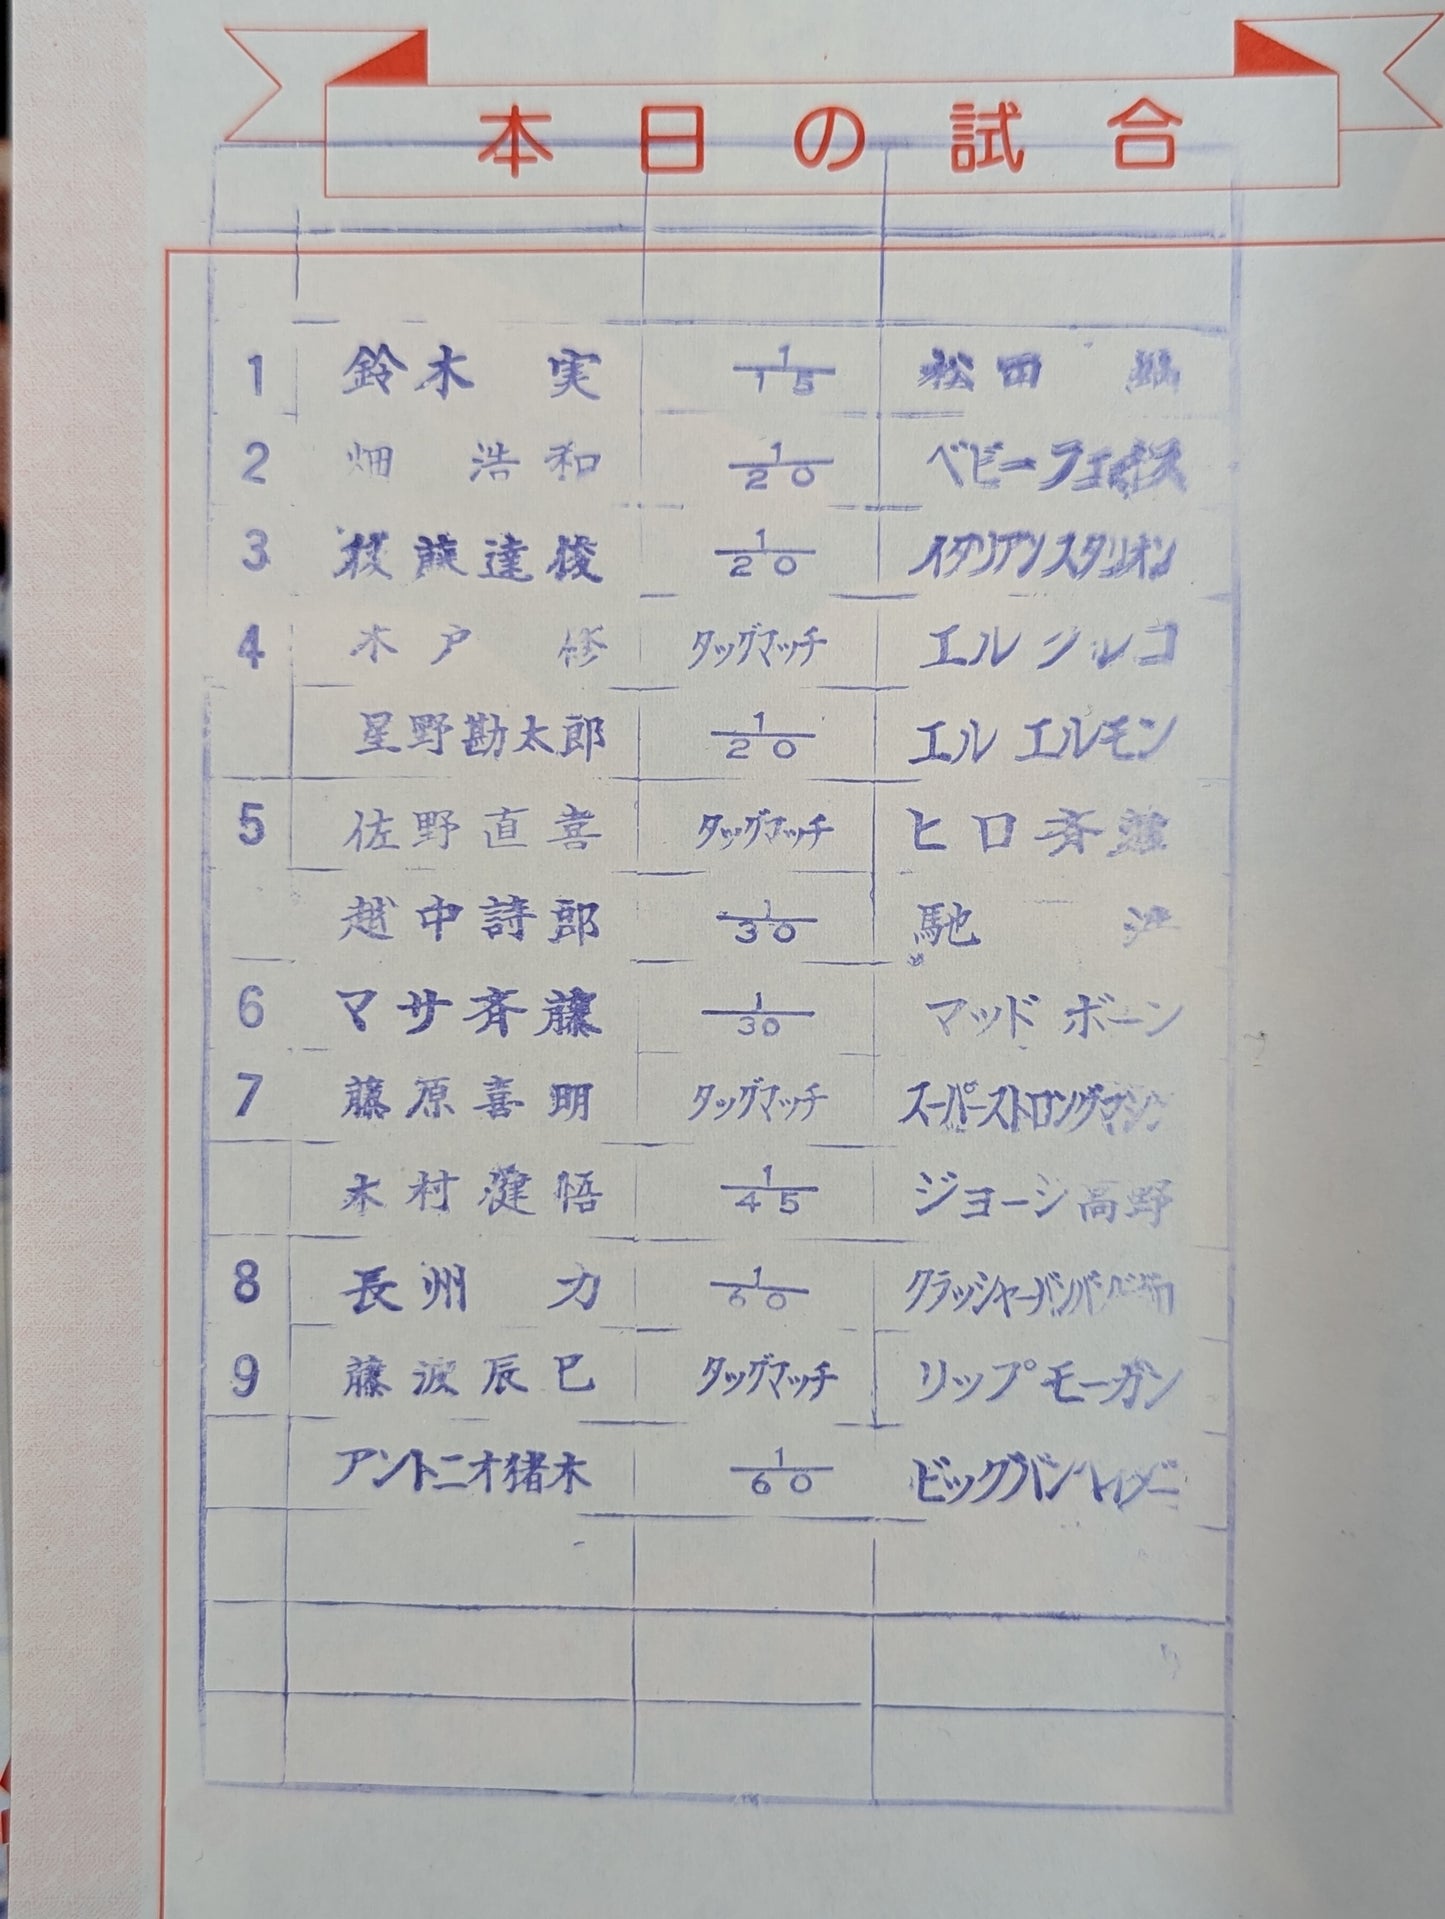 本日の試合
1 鈴木 実 1/15 松田
2 畑 浩和 1/20 ベビーフェイス
3 後藤達俊 1/20 イタリアンスタリオン
4 木戸 修 タッグマッチ エル
星野勘太郎 1/20 エル エルモン
5 佐野直喜 タッグマッチ ヒロ斉藤
越中詩郎 1/30 馳 浩
6 マサ斉藤 1/30 マッド ボーン
7 藤原喜明 タッグマッチ スーパーストロングマシン
木村健悟 1/45 ジョージ高野
8 長州 力 1/60 クラッシャーバンバンビガロ
9 藤波辰巳 タッグマッチ リップ モーガン
アントニオ猪木 1/60 ビッグバンベイダー